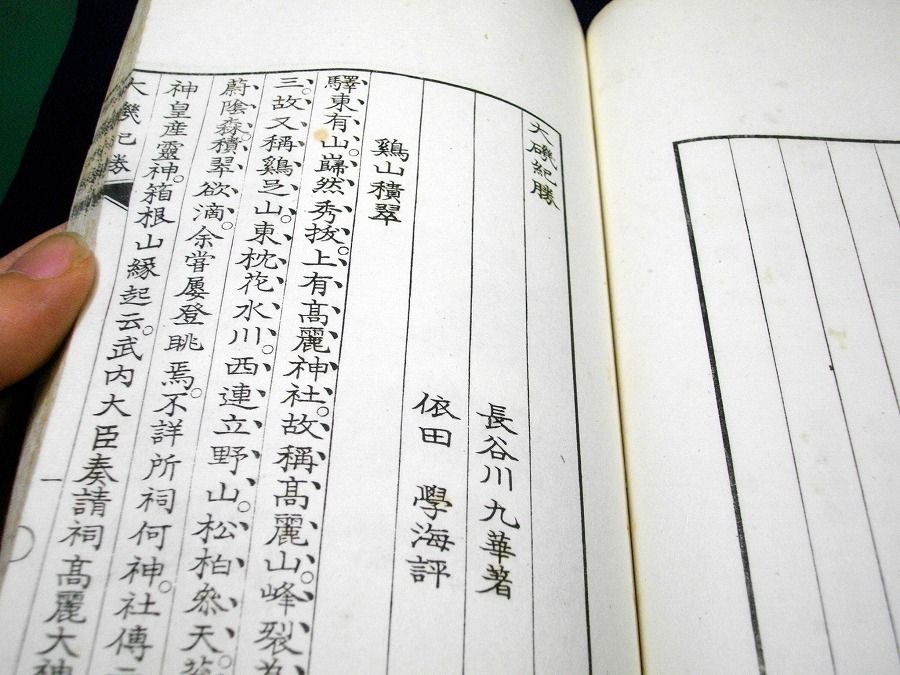 大磯紀勝
長谷川九華著
依田 學海評
鷄山積翠
驛東有山巋然秀拔。上有髙麗神社。故稱髙麗山。峰裂為
三。故又稱鷄足山。東枕花水川。西連立野山。松柏叅天。
蔚陰森。積翠欲滴。余嘗屢登眺焉。不詳所祠何神。社傳
神皇産靈神。箱根山緣起云。武内大臣奏請祠髙麗大神
大磯紀勝
一